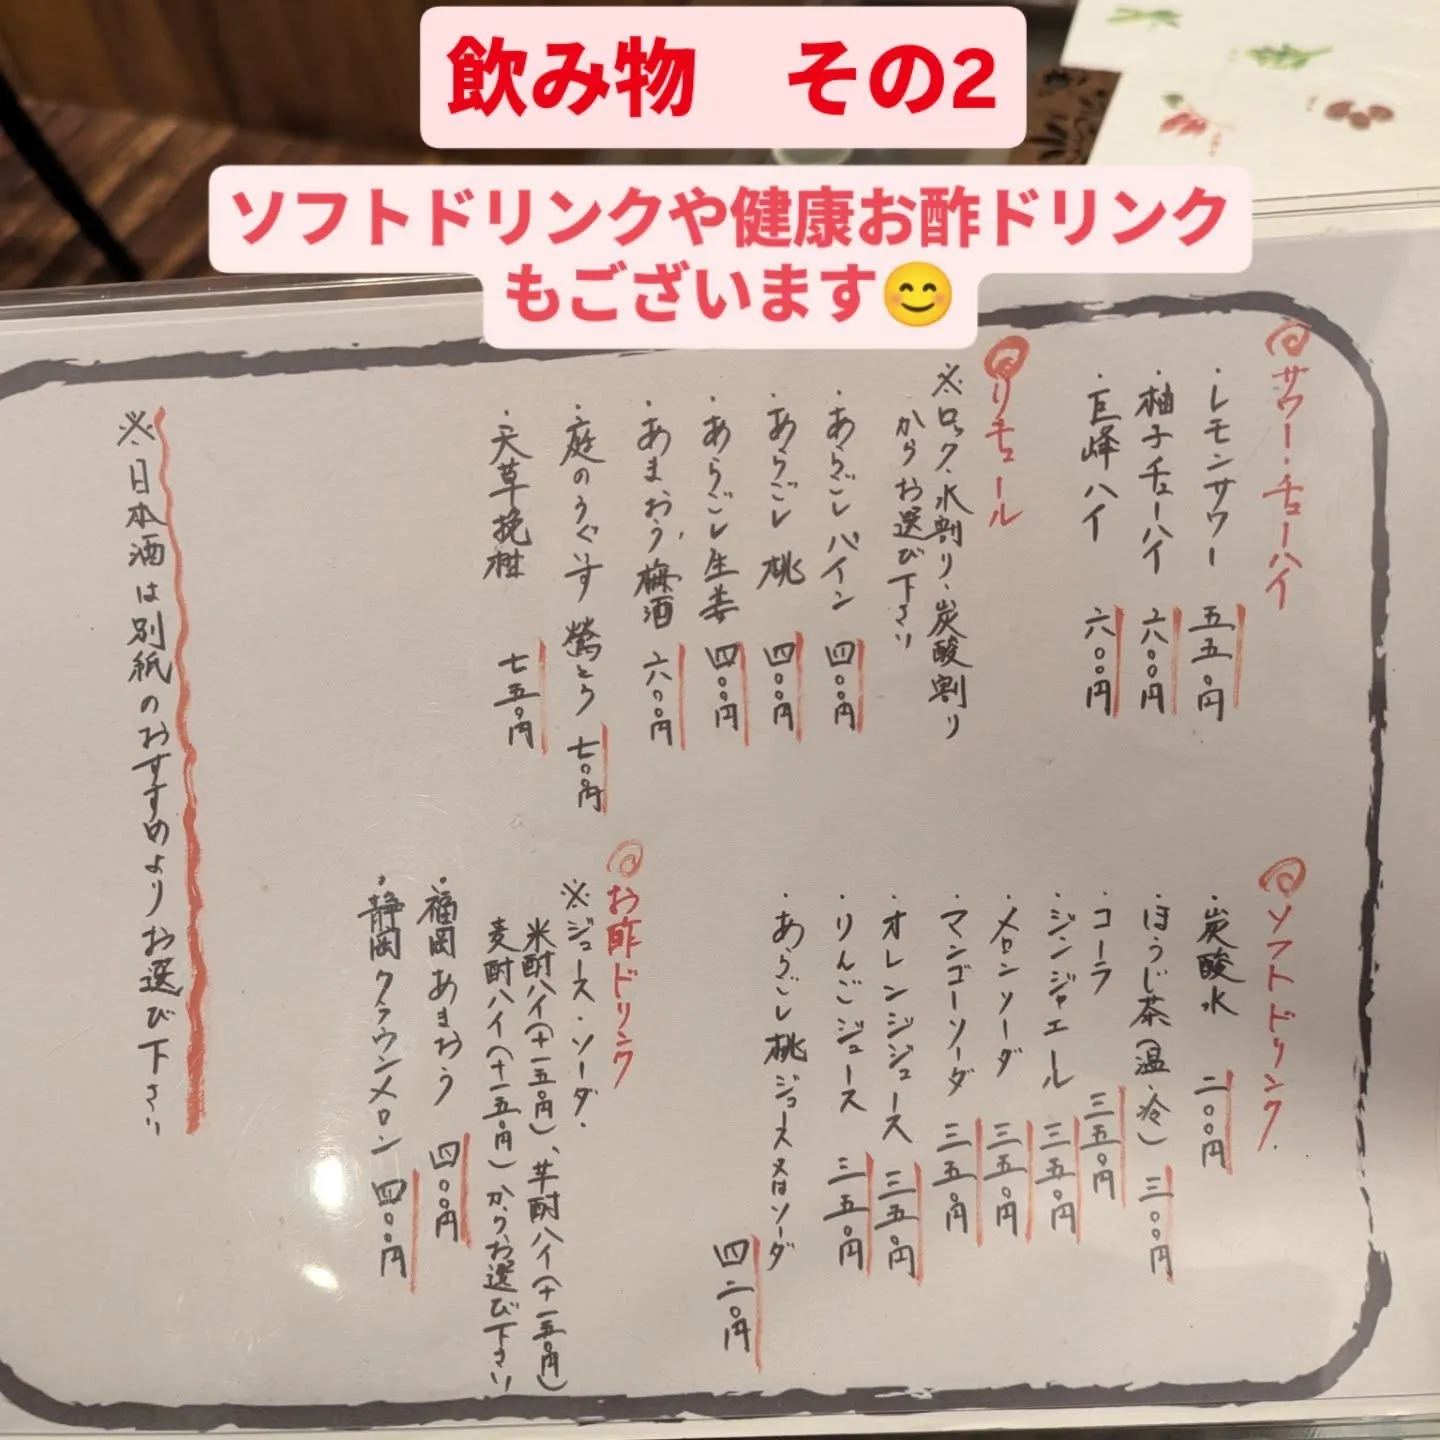 飲み物　その2
ソフトドリンクや健康お酢ドリンク
もございます😊
サワー・チューハイ
・レモンサワー 五五〇円
・柚子チューハイ 六〇〇円
・巨峰ハイ 六〇〇円
リチュール
※ロック・水割り・炭酸割り
からお選び下さい
・あらごしパイン 四〇〇円
・あらごし桃 四〇〇円
・あらごし生姜 四〇〇円
・あまおう梅酒 六〇〇円
・庭のうぐいす 鶯とろ 七〇〇円
・天草挽柑 七五〇円
ソフトドリンク
・炭酸水 二〇〇円
・ほうじ茶(温・冷) 三〇〇円
・コーラ 三五〇円
・ジンジャエール 三五〇円
・メロンソーダ 三五〇円
・マンゴーソーダ 三五〇円
・オレンジジュース 三五〇円
・りんごジュース 三五〇円
・あらごし桃ジュース又はソーダ
四二〇円
お酢ドリンク
※ジュース・ソーダ・
米酎ハイ(十一五〇円)、芋酎ハイ(十一五〇円)
麦酎ハイ(十一五〇円)からお選び下さい
・福岡あまおう 四〇〇円
・静岡クラウンメロン 四〇〇円
※日本酒は別紙のおすすめよりお選び下さい